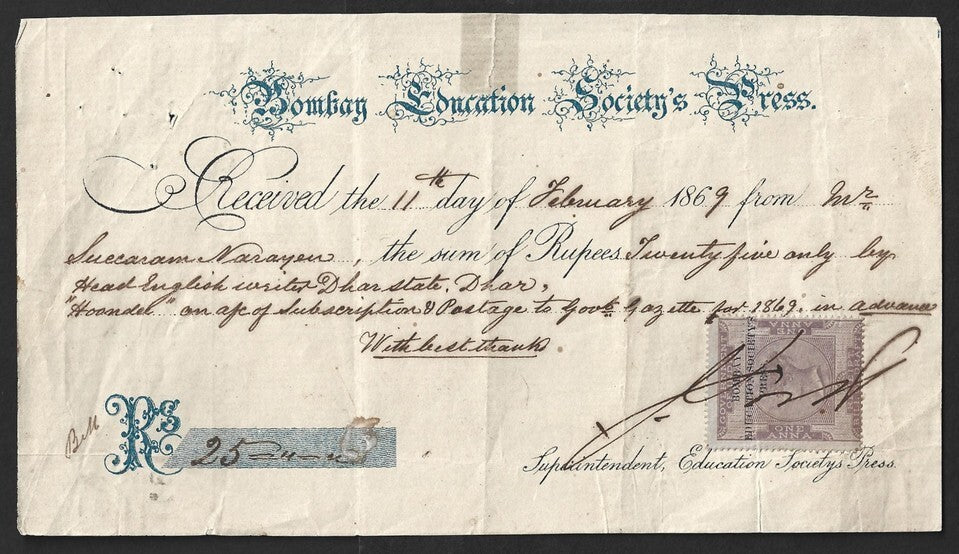 Bombay Education Society's Press.
Received the 11th day of February 1869 from Mr
Succaram Narayen, the sum of Rupees Twentyfive only by
Head English writer Dhar state, Dhar,
"Hoondee" on a/c of Subscription & Postage to Govt. Gazette for 1869. in advance
With best thanks.
ONE ANNA
GOVERNMENT
BOMBAY
EDUCATION SOCIETY'S
PRESS
ONE ANNA
Rs 25
Superintendent, Education Societys Press.